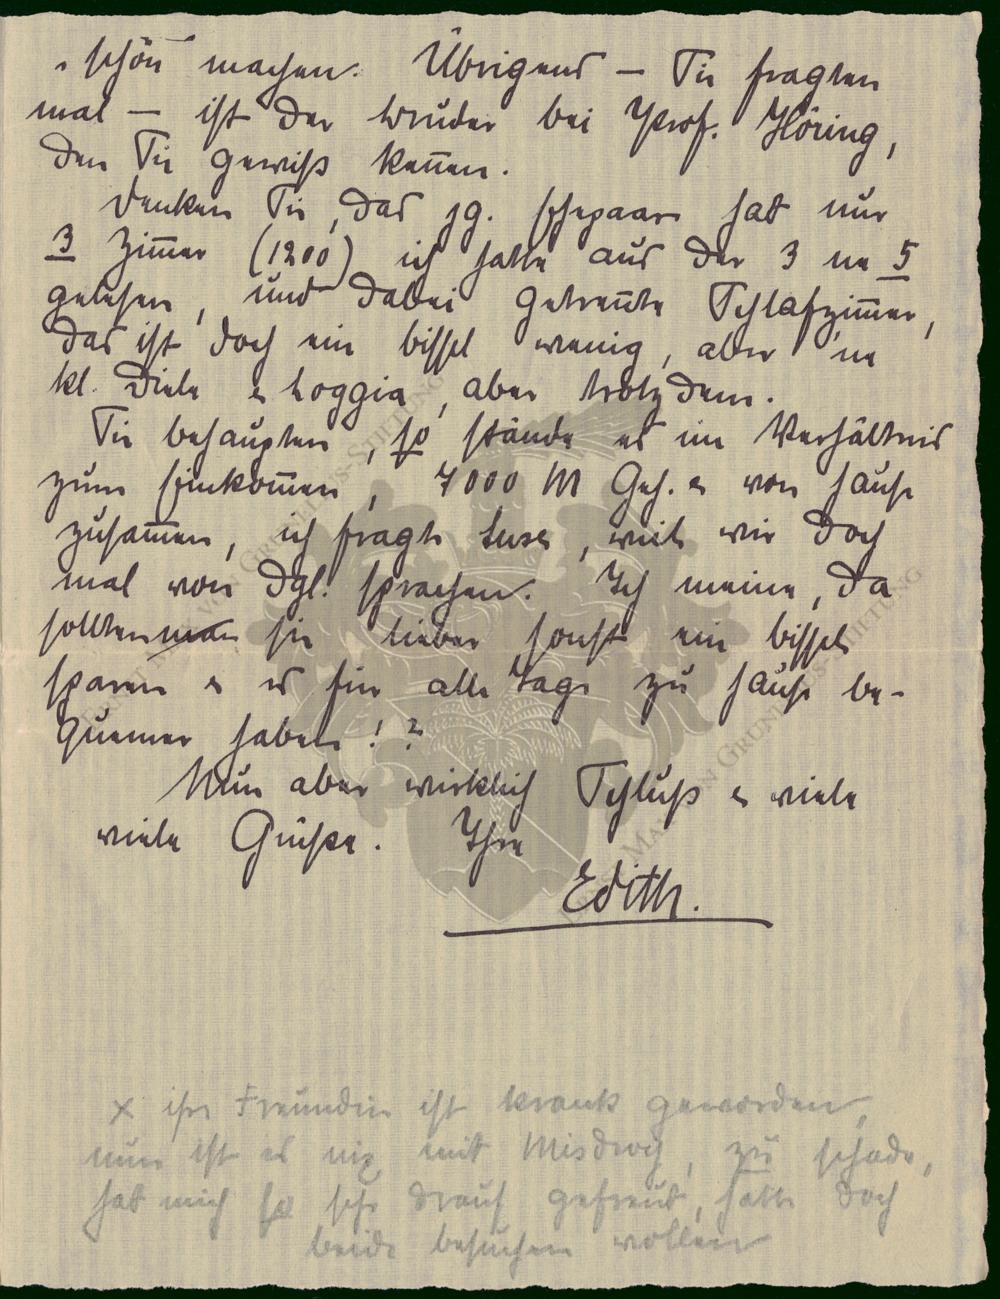 "schön" machen. Übrigens – Sie fragten
mal – ist der Bruder bei Prof. Höring,
den Sie gewiß kennen.
Denken Sie, das jg. Ehepaar hat nur
3 Zimmer (1200) ich hatte aus der 3 ne 5
gelesen, und dabei getrennte Schlafzimmer,
das ist doch ein bissel wenig, aber 'ne
kl. Diele & Loggia, aber trotzdem.
Sie behaupten, so stände es im Verhältnis
zum Einkommen, 7000 M Geh. & von Hause
zusammen, ich fragte Luse, weil wir doch
mal von dgl. sprachen. Ich meine, da
sollten man sie lieber sonst ein bissel
sparen & es für alle Tage zu Hause be-
quemer haben!?
Nun aber wirklich Schluß & viele
viele Grüße. Ihre
Edith.
x ihre Freundin ist krank geworden,
nun ist es nix mit Misdroy, zu schade,
hat mich so sehr drauf gefreut, hatte doch
beide besuchen wollen